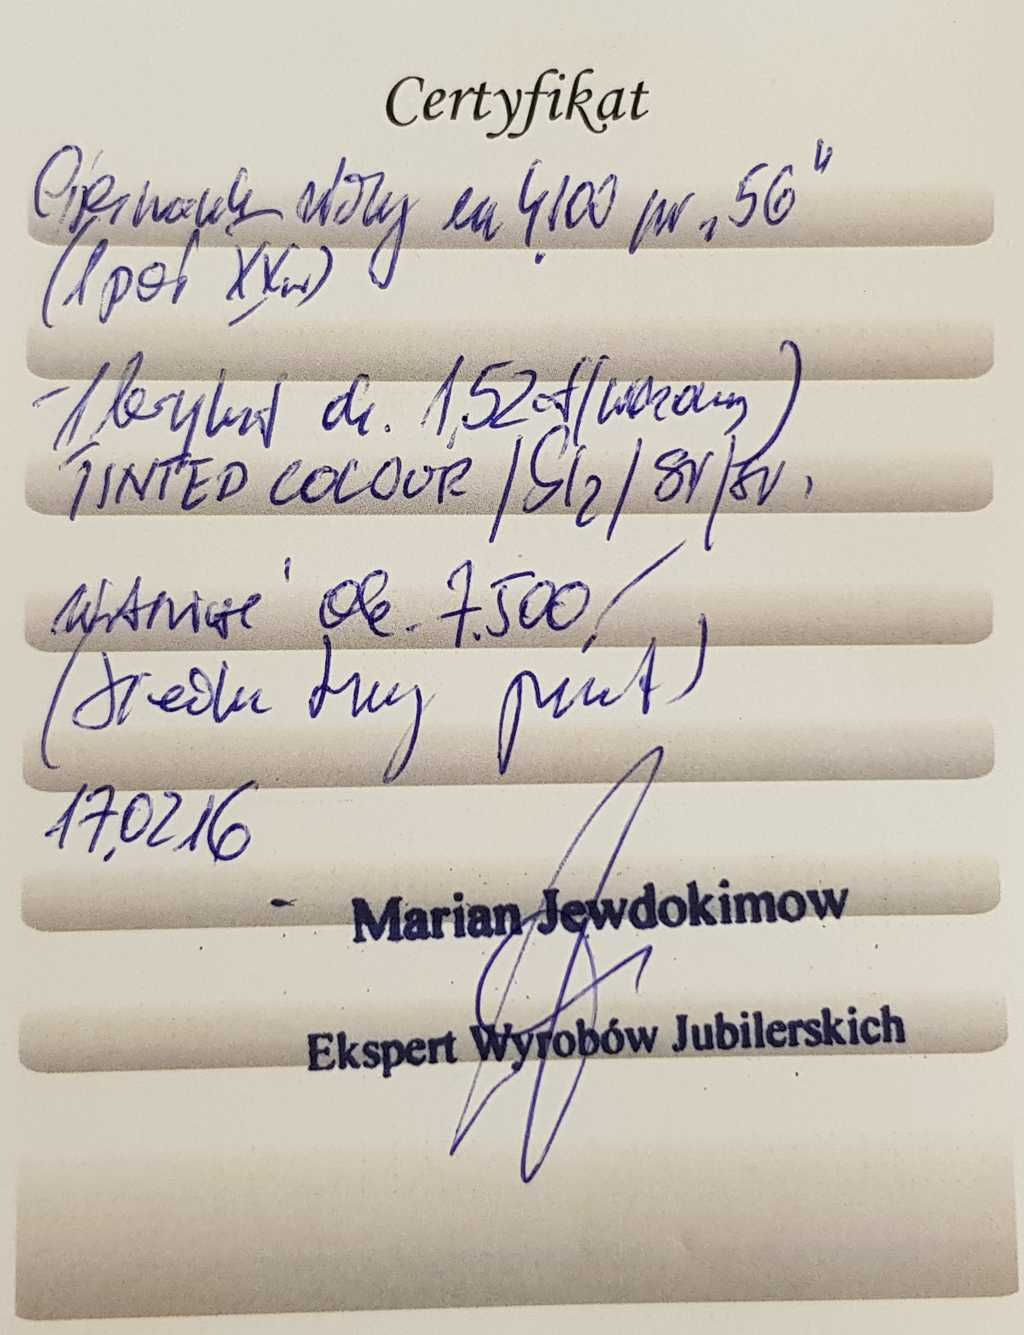 Certyfikat
Pierścionek złoty m 4,100 pr. „56"
(1 poł XXw)
- 1 brylant ok. 1,52 ct (ważony)
TINTED COLOUR / SI2 / 
wartość ok. 7.500,
(siedem tys pięćset)
17.02.16
Marian Jewdokimow
Ekspert Wyrobów Jubilerskich